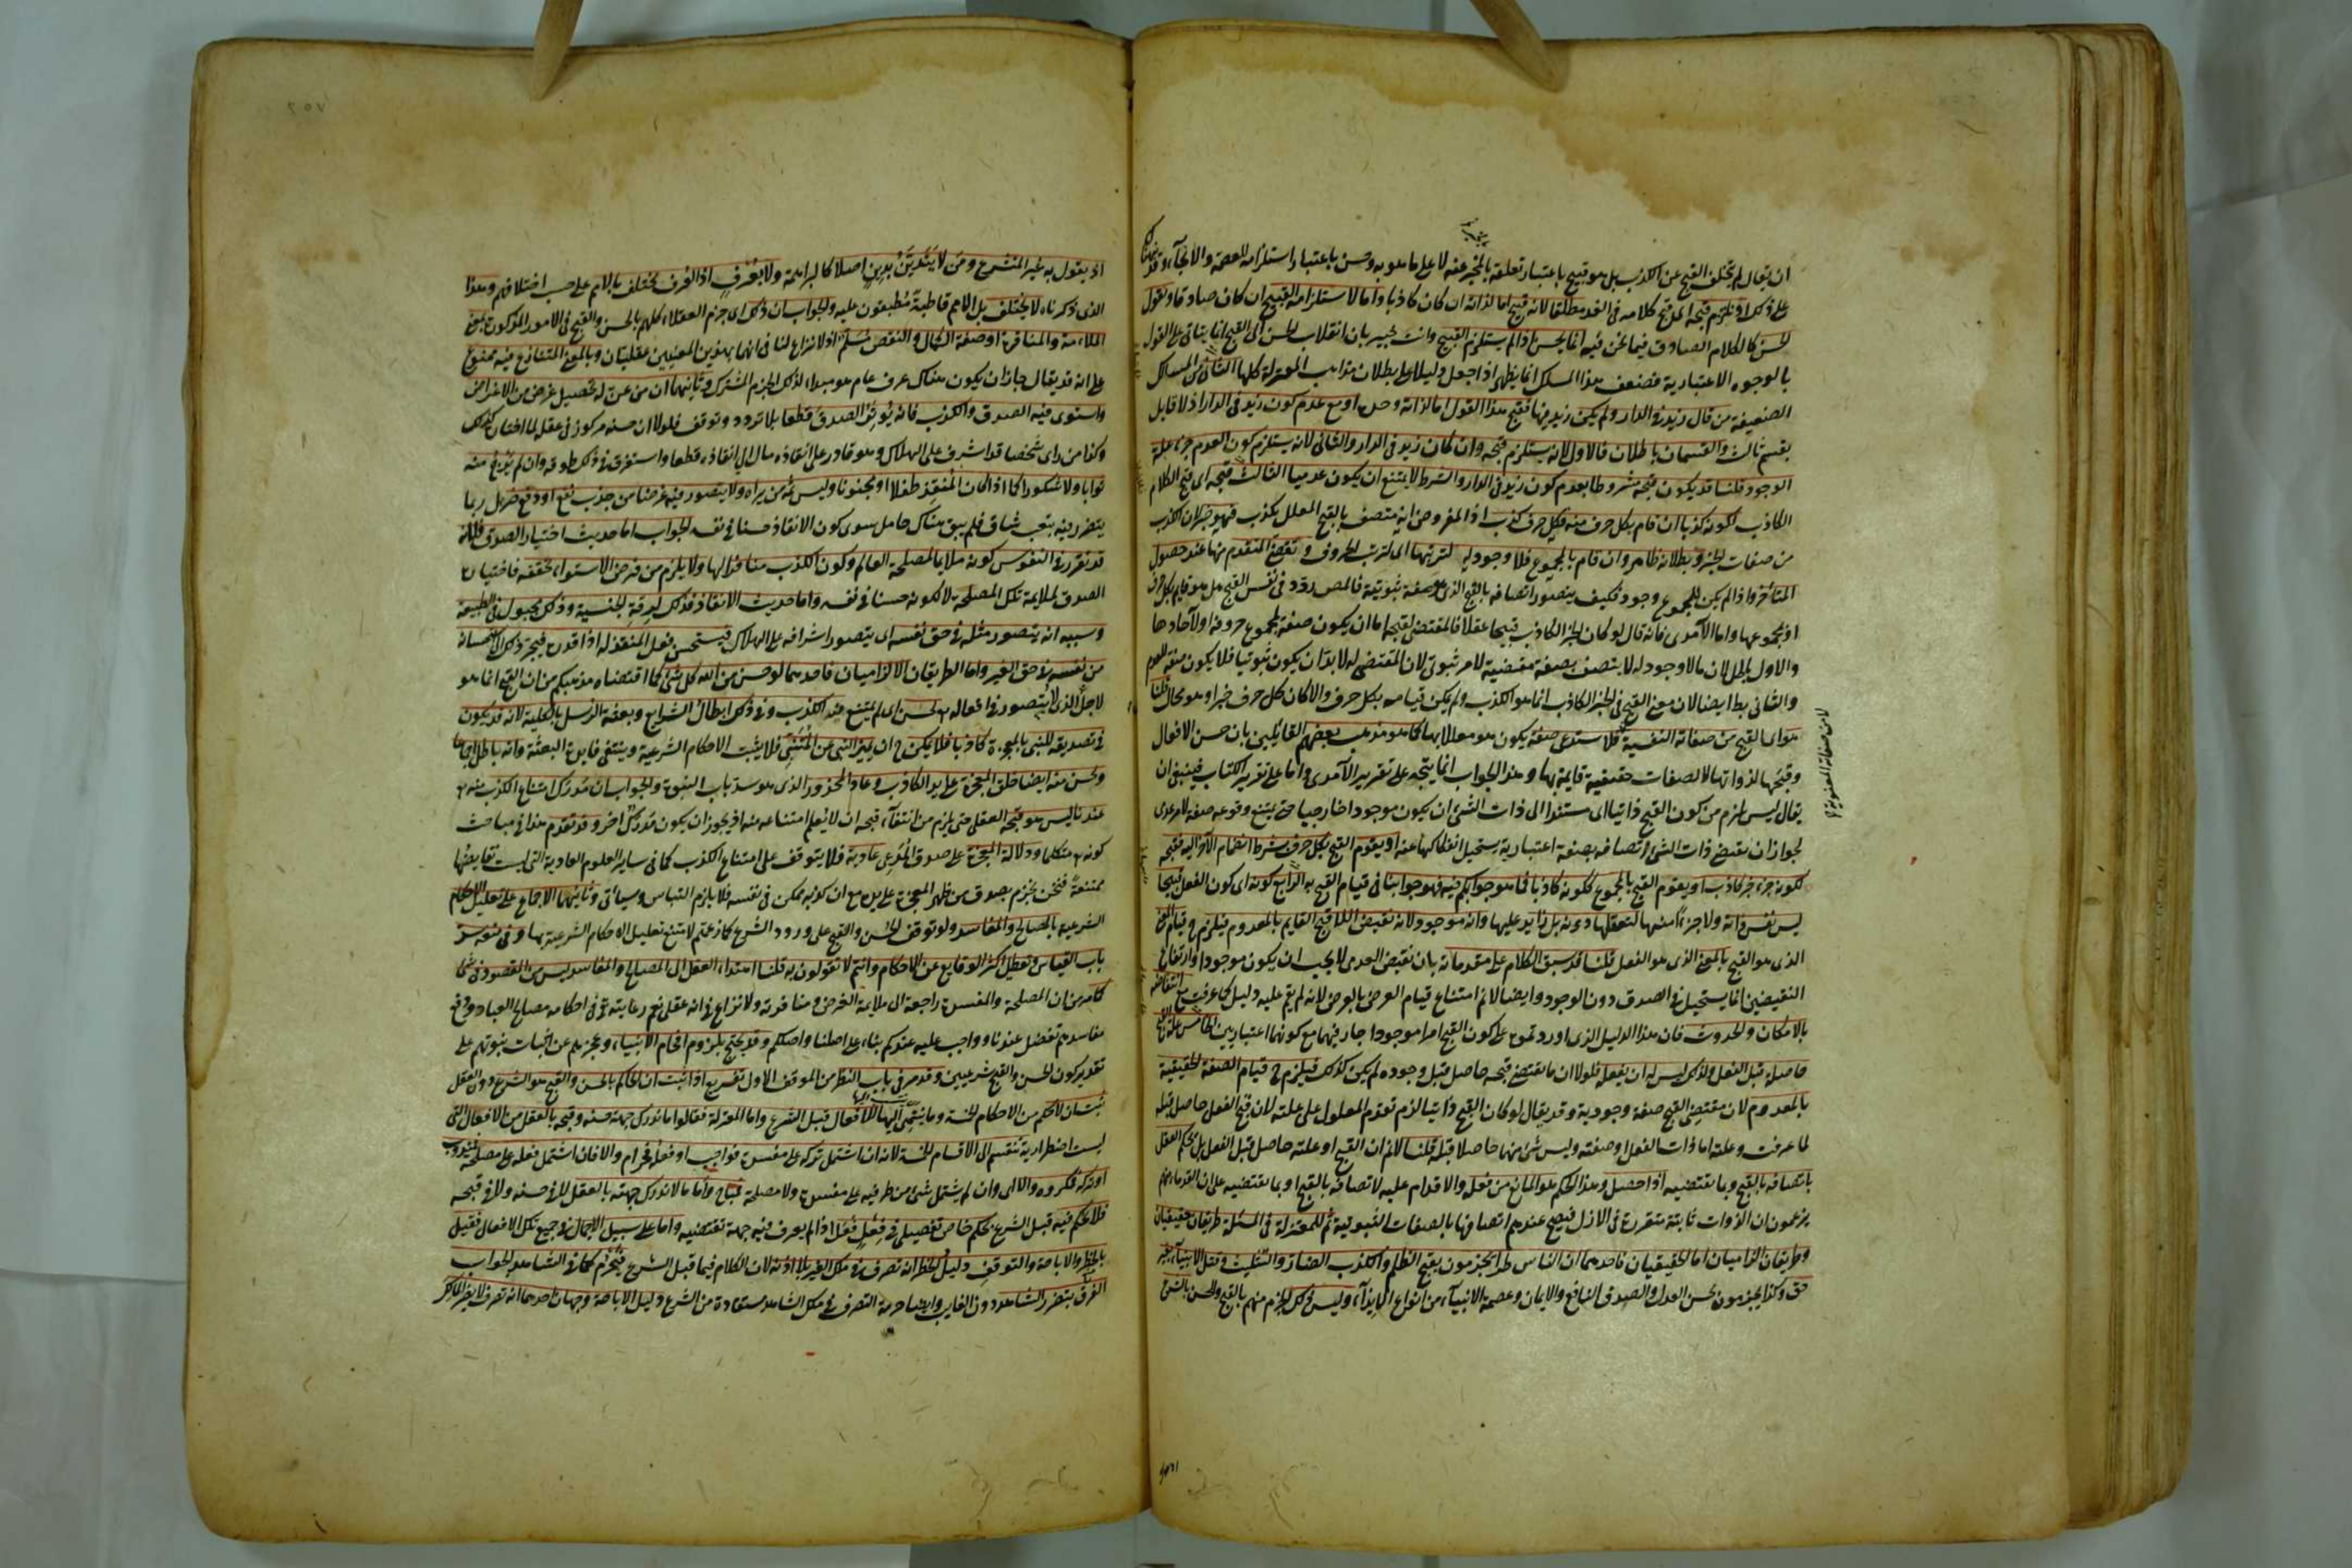 ان يقال لم يتخلف القبح عن الكذب بل هو قبيح باعتبار تعلقه بالمخبر عنه لا على ما هو به وحسن باعتبار استلزامه للعصمة والانجاء وقد
على ذلك او نلتزم قبحه اى قبح كلامه فى الغد مطلقا لانه قبيح اما لذاته ان كان كاذبا واما لاستلزامه القبيح ان كان صادقا ونقول
الحسن كالكلام الصادق فيما نحن فيه انما يحسن اذا لم يستلزم القبيح وانت خبير بان انقلاب الحسن الى القبح انما يتأتى على القول
بالوجوه الاعتبارية فضعف هذا المسلك انما يظهر اذا جعل دليلا على بطلان مذاهب المعتزلة كلها الثانى من المسالك
الضعيفة من قال زيد فى الدار ولم يكن زيد فيها فقبح هذا القول اما لذاته وحده او مع عدم كون زيد فى الدار اذ لا قايل
بقسم ثالث والقسمان باطلان فالاول لانه يستلزم قبحه وان كان زيد فى الدار والثانى لانه يستلزم كون العدم جزء علة
الوجود قلنا قد يكون قبحه مشروطا بعدم كون زيد فى الدار والشرط لا يمتنع ان يكون عدميا الثالث قبحه اى قبح الكلام
الكاذب لكونه كذبا ان قام بكل حرف منه فكل حرف كذب اذ المفروض انه متصف بالقبح المعلل بكذب فهو خبر لان الكذب
من صفات الخبر وبطلانه ظاهر وان قام بالمجموع فلا وجود له لترتبها اى لترتب الحروف وتقضى المتقدم منها عند حصول
المتأخر واذا لم يكن للمجموع وجود فكيف يتصور اتصافه بالقبح الذى هو صفة ثبوتية فالمصنف ردد فى نفس القبح هل هو قايم بكل حرف
او بمجموعها واما الآمدى فانه قال لو كان الخبر الكاذب قبيحا عقلا فالمقتضى لقبحه اما ان يكون صفة لمجموع حروفه او لآحادها
والاول باطل لان ما لا وجود له لا يتصف بصفة مقتضية لامر ثبوتى لان المقتضى له لا بد ان يكون ثبوتيا فلا يكون صفة للمعدوم
والثانى بط ايضا لان مقتضى القبح فى الخبر الكاذب انما هو الكذب ولم يكن قيامه بكل حرف والا كان كل حرف خبرا وهو محال قلنا
هو اى القبح من صفاته النفسية فلا يستدعى صفة يكون هو معللا بها كما هو مذهب بعضهم القائلين بان حسن الافعال
لا من صفاته المعنوية
وقبحها لذواتها لا لصفات حقيقية قايمة بها وهذا الجواب انما يتجه على تقرير الآمدى واما على تقرير الكتاب فينبغى ان
يقال ليس يلزم من كون القبح ذاتيا اى مستندا الى ذات الشئ ان يكون موجودا خارجيا حتى يمتنع وقوعه صفة لامر عدمى
لجواز ان يقتضى ذات الشئ اتصافه بصفة اعتبارية يستحيل انفكاكها عنه او يقوم القبح بكل حرف بشرط انضمام الآخر اليه فقبحه
لكونه جزء خبر كاذب او يقوم القبح بالمجموع لكونه كاذبا فما هو جوابكم فيه فهو جوابنا فى قيام القبح به الرابع كونه اى كون الفعل قبيحا
ليس نفس ذاته ولا جزءا منها لتعقلها دونه بل زايد عليها وانه موجود لانه نقيض اللاقبح القايم بالمعدوم فيلزم ح قيام المعنى
الذى هو القبح بالمعنى الذى هو الفعل قلنا قد سبق الكلام على مقدماته بان نقيض العدمى لا يجب ان يكون موجودا وارتفاع
النقيضين انما يستحيل فى الصدق دون الوجود وايضا لا نم امتناع قيام العرض بالعرض لانه لم يقم عليه دليل كما عرفت مع انتقاضه
بالامكان والحدوث فان هذا الدليل الذى اوردتموه على كون القبح امرا موجودا جار فيهما مع كونهما اعتباريين الخامس علة القبح
حاصلة قبل الفعل ولذلك ليس له ان يفعله فلولا ان ما يقتضى قبحه حاصل قبل وجوده لم يكن كذلك فيلزم ح قيام الصفة الحقيقية
بالمعدوم لان مقتضى القبح صفة وجودية وقد يقال لو كان القبح ذاتيا لزم تقدم المعلول على علته لان قبح الفعل حاصل قبله
لما عرفت وعلته اما ذات الفعل او صفته وليس شئ منها حاصلا قبله قلنا لا نم ان القبح او علته حاصل قبل الفعل بل يحكم العقل
باتصافه بالقبح وبما يقتضيه اذا حصل وهذا الحكم هو المانع من فعله والاقدام عليه لا اتصافه بالقبح او بما يقتضيه على ان القدماء منهم
يزعمون ان الذوات ثابتة متقررة فى الازل فيصح عندهم اتصافها بالصفات الثبوتية ثم للمعتزلة فى المسئلة طريقان حقيقيان
وطريقان الزاميان اما الحقيقيان فاحدهما ان الناس طرا يجزمون بقبح الظلم والكذب الضار والتثليث وقتل الانبياء بغير
حق وكذا يجزمون بحسن العدل والصدق النافع والايمان وعصمة الانبياء من انواع الايذاء وليس ذلك الجزم منهم بالقبح والحسن بالشرع
٢٥٧
اذ يقول به غير المتشرع ومن لا يتدين بدين اصلا كالبراهمة ولا بعرف اذ العرف يختلف بالامم على حسب اختلافهم وهذا
الذى ذكرناه لا يختلف بل الامم قاطبة مطبقون عليه والجواب ان ذلك اى جزم العقلاء كلهم بالحسن والقبح فى الامور المذكورة بمعنى
الملاءمة والمنافرة او صفة الكمال والنقص مسلم اذ لا نزاع لنا فى انهما بهذين المعنيين عقليان وبالمعنى المتنازع فيه ممنوع
على انه قد يقال جاز ان يكون هناك عرف عام هو مبدأ لذلك الجزم المشترك وثانيهما ان من عن له تحصيل غرض من الاغراض
واستوى فيه الصدق والكذب فانه يؤثر الصدق قطعا بلا تردد وتوقف فلولا ان حسنه مركوز فى عقله لما اختاره كذلك
وكذا من راى شخصا قد اشرف على الهلاك وهو قادر على انقاذه مال الى انقاذه قطعا واستغرق فى ذلك طوقه وان لم يرج منه
ثوابا ولا شكورا كما اذا كان المنقذ طفلا او مجنونا وليس ثمه من يراه ولا يتصور فيه غرضا من جذب نفع او دفع ضر بل ربما
يتضرر فيه بتعب شاق فلم يبق هناك حامل سوى كون الانقاذ حسنا فى نفسه والجواب اما حديث اختيار الصدق فلانه
قد تقرر فى النفوس كونه ملايما لمصلحة العالم وكون الكذب منافرا لها ولا يلزم من فرض الاستواء تحققه فاختياره
الصدق لملايمة تلك المصلحة لا لكونه حسنا فى نفسه واما حديث الانقاذ فذلك لرقة الجنسية وذلك مجبول فى الطبيعة
وسببه انه يتصور مثله فى حق نفسه اى يتصور اشرافه على الهلاك فيستحسن فعل المنقذ له اذا قدره فيجره ذلك الى استحسانه
من نفسه فى حق الغير واما الطريقان الالزاميان فاحدهما لو حسن من الله كل شئ كما اقتضاه مذهبكم من ان القبح انما هو
لاجل النهى الذى لا يتصور فى افعاله تع لحسن اى لم يمتنع منه الكذب وفى ذلك ابطال الشرايع وبعثة الرسل بالكلية لانه قد يكون
فى تصديقه للنبى بالمعجزة كاذبا فلا يمكن ح ان يميز النبى عن المتنبى فلا يثبت الاحكام الشرعية وينتفى فايدة البعثة وانه باطل اجماعا
ولحسن منه ايضا خلق المعجزة على يد الكاذب وعاد المحذور الذى هو سد باب النبوة والجواب ان مدرك امتناع الكذب منه تع
عندنا ليس هو قبحه العقلى حتى يلزم من انتفاء قبحه ان لا يعلم امتناعه منه اذ يجوز ان يكون مدرك آخر وقد تقدم هذا فى مباحث
كونه تع متكلما ودلالة المعجزة على صدق المدعى عادية فلا يتوقف على امتناع الكذب كما فى ساير العلوم العادية التى ليست نقايضها
ممتنعة فنحن نجزم بصدق من ظهر المعجزة على يده مع ان كذبه ممكن فى نفسه فلا يلزم التباس وسيأتى وثانيهما الاجماع على تعليل الاحكام
الشرعية بالمصالح والمفاسد ولو توقف الحسن والقبح على ورود الشرع كما زعمتم لامتنع تعليل الاحكام الشرعية بها وفى منعه سد
باب القياس وتعطيل اكثر الوقايع عن الاحكام وانتم لا تقولون به قلنا اهتداء العقل الى المصالح والمفاسد ليس من المقصود فى شئ
كما مر من ان المصلحة والمفسدة راجعة الى ملايمة الغرض ومنافرته ولا نزاع فى انه عقلى نعم رعايته تع فى احكامه مصالح العباد ودفع
مفاسدهم تفضل عندنا وواجب عليه عندكم بناء على اصلنا واصلكم وقد يحتج بلزوم افحام الانبياء وعجزهم عن اثبات نبوتهم على
تقدير كون الحسن والقبح شرعيين وقد مر فى باب النظر من الموقف الاول تفريع اذا ثبت ان الحاكم بالحسن والقبح هو الشرع دون العقل
ثبت ان لا حكم من الاحكام الخمسة وما ينتمى اليها للافعال قبل الشرع واما المعتزلة فقالوا ما ندرك جهة حسنه وقبحه بالعقل من الافعال التى
ليست اضطرارية تنقسم الى الاقسام الخمسة لانه ان اشتمل تركه على مفسدة فواجب او فعله فحرام والا فان اشتمل فعله على مصلحة فمندوب
او تركه فمكروه والا اى وان لم يشتمل شئ من طرفيه على مفسدة ولا مصلحة فمباح واما ما لا ندرك جهته بالعقل لا فى حسنه ولا فى قبحه
فلا يحكم فيه قبل الشرع بحكم خاص تفصيلى فى فعل فعل اذ لم يعرف فيه جهة تقتضيه واما على سبيل الاجمال فى جميع تلك الافعال فقيل
بالحظر والاباحة والتوقف دليل الحظر انه تصرف فى ملك الغير بلا اذنه لان الكلام فيما قبل الشرع فيحرم كما فى الشاهد والجواب
الفرق بتضرر الشاهد دون الغايب وايضا حرمة التصرف فى ملك الشاهد مستفادة من الشرع دليل الاباحة وجهان احدهما انه تصرف لا يضر المالك